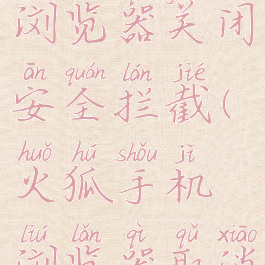 浏览器关闭
ān quán lán jié
安全拦截(
huǒ hú shǒu jī
火狐手机
liú lǎn qì qǔ xiāo
浏览器取消